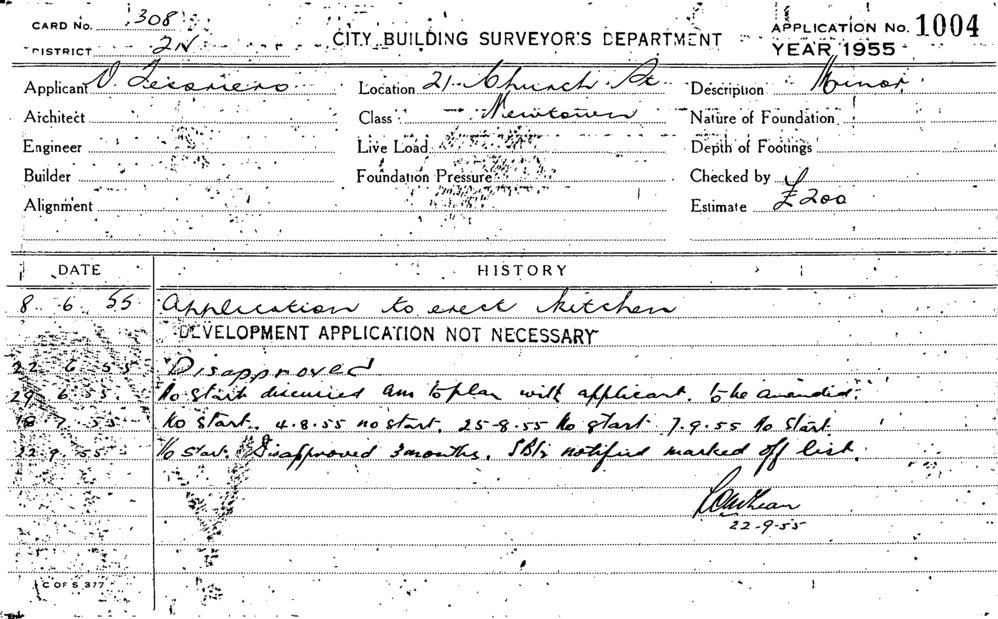 CARD NO. 308
DISTRICT 2N
CITY BUILDING SURVEYOR'S DEPARTMENT
APPLICATION NO. 1004
YEAR 1955
Applicant
Location 21 Church St
Description Minor
Architect
Class Newtown
Nature of Foundation
Engineer
Live Load
Depth of Footings
Builder
Foundation Pressure
Checked by
Alignment
Estimate £200
DATE HISTORY
8 6 55 Application to erect kitchen
DEVELOPMENT APPLICATION NOT NECESSARY
22 6 55 Disapproved
29 6 55 No start discussed to plan with applicant. to be amended.
18 7 55 No start. 4.8.55 no start. 25-8.55 No start 7.9.55 No start
22.9.55 No start. Disapproved 3 months. notified marked off list.
22-9-55
C OF S 377